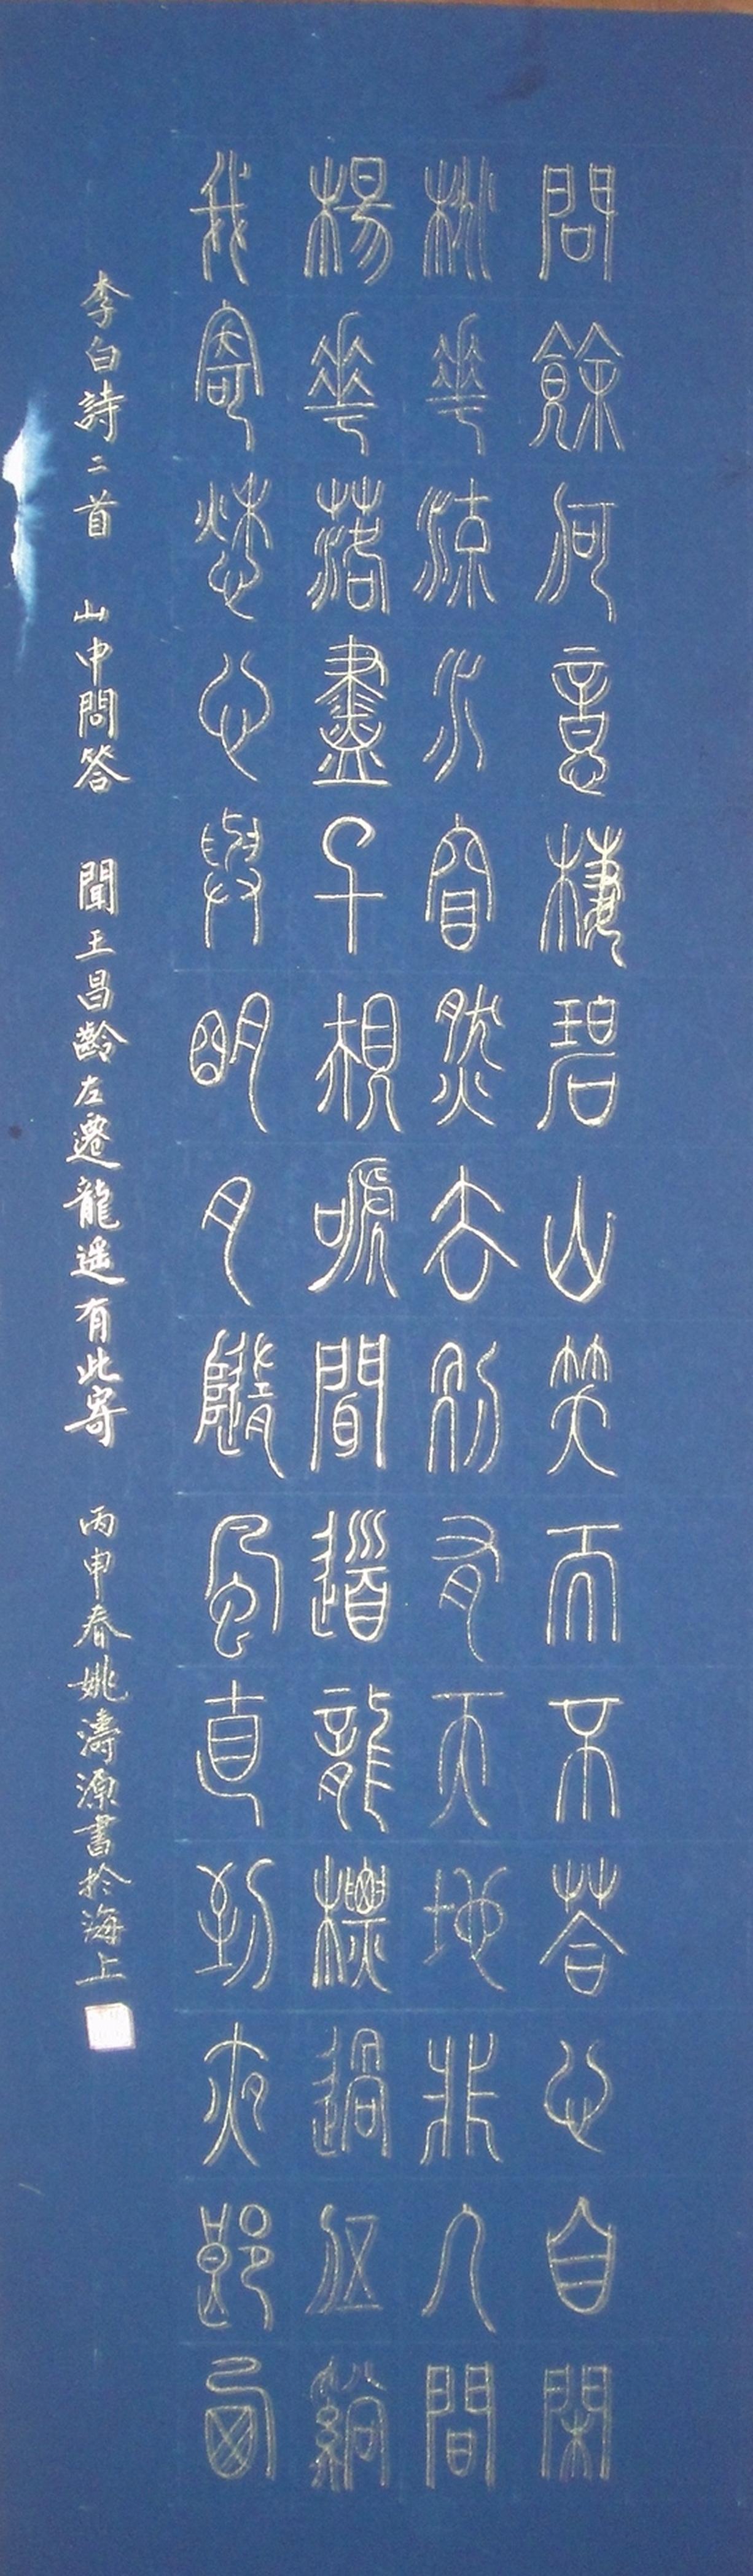 問餘何意棲碧山笑而不荅心自閑
桃華流水窅然去別有天地非人間
楊華落盡子規嗁聞道龍標過五谿
我寄愁心與明月隨風直到夜郎西
李白詩二首 山中問答 聞王昌齡左遷龍遥有此寄 丙申春姚濤源書於海上